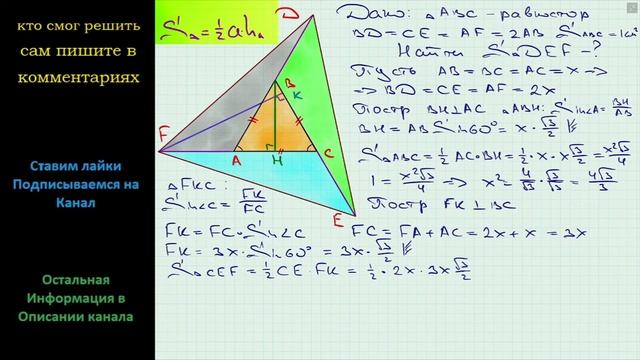 кто смог решить
сам пишите в
комментариях
Ставим лайки
Подписываемся на
Канал
Остальная
Информация в
Описании канала
S△ = ½ a·hₐ
D
B
K
F
A
H
C
E
Дано: △ABC – равностор
BD = CE = AF = 2AB S△ABC = 1см²
Найти S△DEF – ?
Пусть AB = BC = AC = x ⇒
⇒ BD = CE = AF = 2x
Постр BH⊥AC △ABH: Sin∠A = BH/AB
BH = AB Sin60° = x · √3/2
S△ABC = ½ AC·BH = ½ · x · x √3/2 = x²√3/4
1 = x²√3/4 ⇒ x² = 4/√3 · √3/√3 = 4√3/3
Постр FK ⊥ BC
△FKC:
Sin∠C = FK/FC
FK = FC · Sin∠C FC = FA + AC = 2x + x = 3x
FK = 3x · Sin60° = 3x · √3/2
S△CEF = ½ CE · FK = ½ · 2x · 3x √3/2